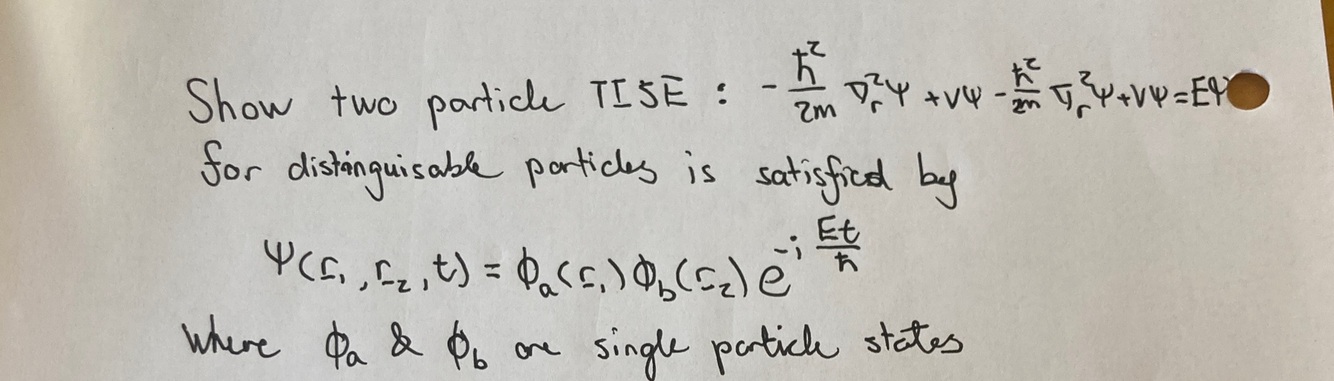 Show two particle TISE : -ħ²/2m ∇ᵣ²Ψ + VΨ - ħ²/2m ∇ᵣ²Ψ + VΨ = EΨ
for distinguisable particles is satisfied by
Ψ(r₁, r₂, t) = ϕₐ(r₁) ϕ_b(r₂) e^(-i Et/ħ)
where ϕₐ & ϕ_b are single particle states